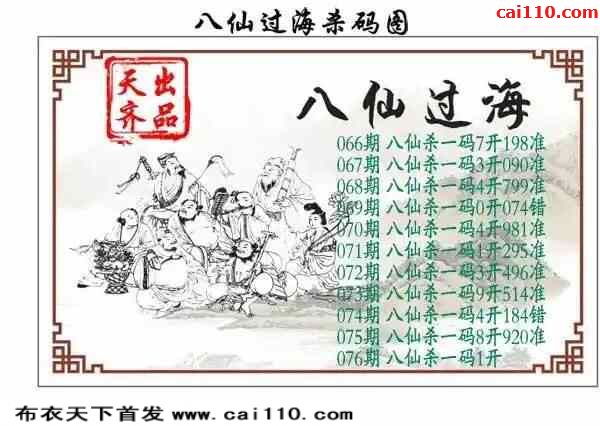 八仙过海杀码图
cai110.com
天齐出品
八仙过海
066期 八仙杀一码7开198准
067期 八仙杀一码3开090准
068期 八仙杀一码4开799准
069期 八仙杀一码0开074错
070期 八仙杀一码4开981准
071期 八仙杀一码1开295准
072期 八仙杀一码3开496准
073期 八仙杀一码9开514准
074期 八仙杀一码4开184错
075期 八仙杀一码8开920准
076期 八仙杀一码1开
布衣天下首发 www.cai110.com